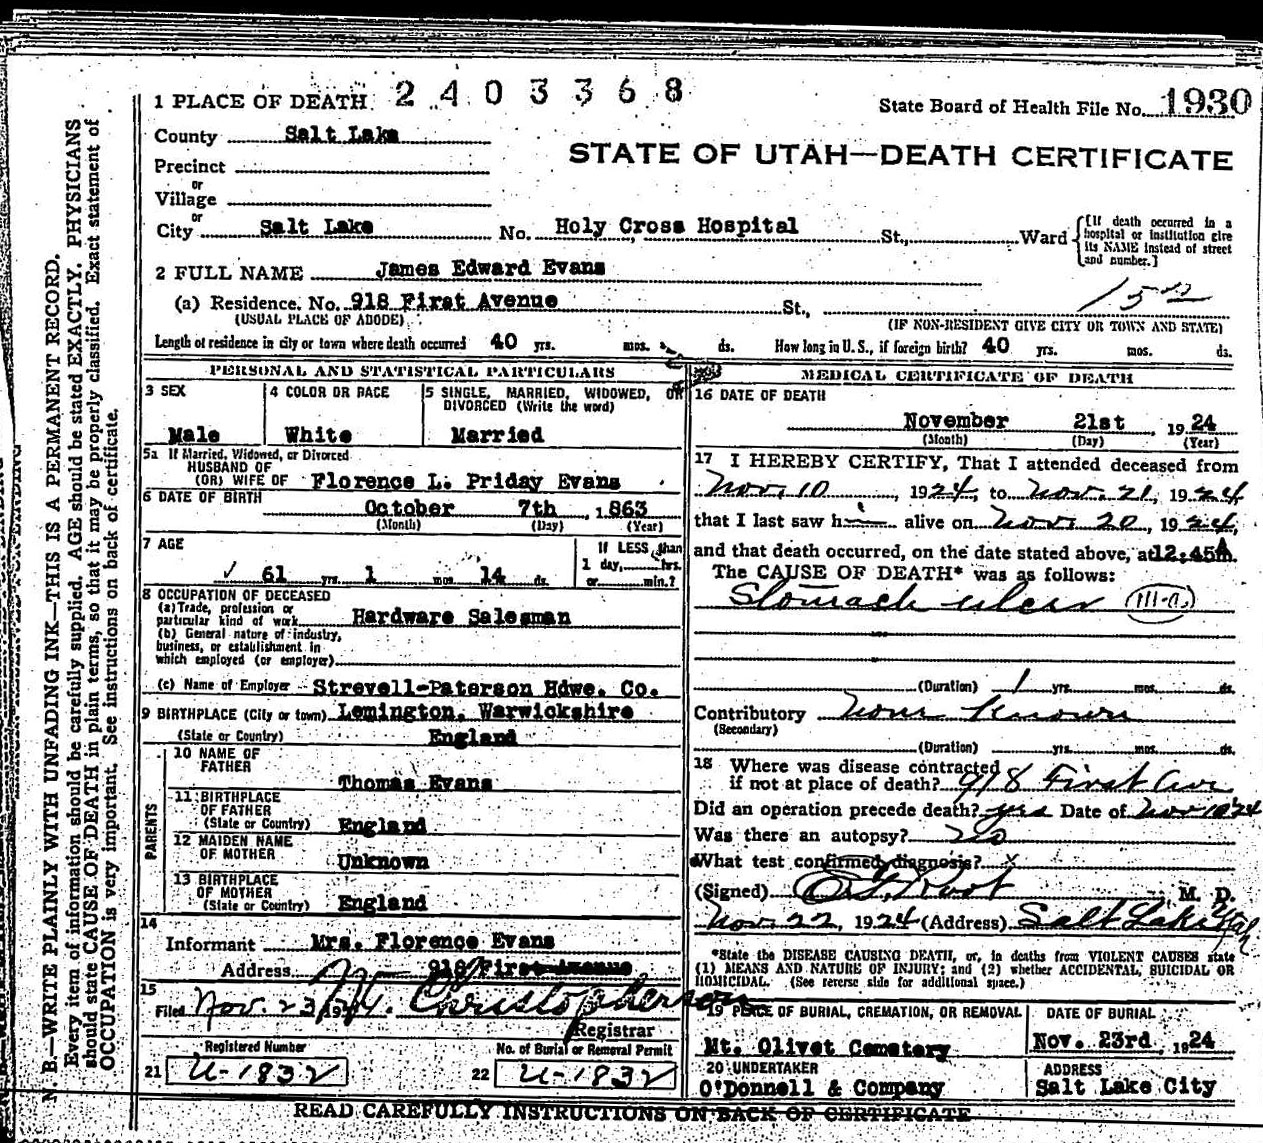 1 PLACE OF DEATH 2403368
State Board of Health File No. 1930
County Salt Lake
STATE OF UTAH—DEATH CERTIFICATE
Precinct
or
Village
or
City Salt Lake No. Holy Cross Hospital St., Ward
[If death occurred in a
hospital or institution give
its NAME instead of street
and number.]
2 FULL NAME James Edward Evans
(a) Residence. No. 918 First Avenue St.,
(USUAL PLACE OF ABODE)
(IF NON-RESIDENT GIVE CITY OR TOWN AND STATE)
Length of residence in city or town where death occurred 40 yrs. mos. ds. How long in U. S., if foreign birth? 40 yrs. mos. ds.
PERSONAL AND STATISTICAL PARTICULARS
3 SEX
Male
4 COLOR OR RACE
White
5 SINGLE, MARRIED, WIDOWED, OR
DIVORCED (Write the word)
Married
5a If Married, Widowed, or Divorced
HUSBAND OF
(OR) WIFE OF Florence L. Priday Evans
6 DATE OF BIRTH
October 7th, 1863
(Month) (Day) (Year)
7 AGE
61 yrs. 1 mos. 14 ds.
If LESS than
1 day, hrs.
or min.?
8 OCCUPATION OF DECEASED
(a) Trade, profession or
particular kind of work Hardware Salesman
(b) General nature of industry,
business, or establishment in
which employed (or employer)
(c) Name of Employer Strevell-Paterson Hdwe. Co.
9 BIRTHPLACE (City or town) Lemington, Warwickshire
(State or Country) England
PARENTS
10 NAME OF
FATHER
Thomas Evans
11 BIRTHPLACE
OF FATHER
(State or Country) England
12 MAIDEN NAME
OF MOTHER
Unknown
13 BIRTHPLACE
OF MOTHER
(State or Country) England
14
Informant Mrs. Florence Evans
Address 918 First Avenue
15
Filed Nov. 23 1924. Christopherson
Registrar
Registered Number
21 U-1832
No. of Burial or Removal Permit
22 U-1832
MEDICAL CERTIFICATE OF DEATH
16 DATE OF DEATH
November 21st, 1924
(Month) (Day) (Year)
17 I HEREBY CERTIFY, That I attended deceased from
Nov. 10, 1924, to Nov. 21, 1924
that I last saw h i alive on Nov. 20, 1924,
and that death occurred, on the date stated above, at 12:45 A m.
The CAUSE OF DEATH* was as follows:
Stomach ulcer (III-a)
(Duration) 1 yrs. mos. ds.
Contributory None Known
(Secondary)
(Duration) yrs. mos. ds.
18 Where was disease contracted
if not at place of death? 918 First Ave
Did an operation precede death? yes Date of Nov 10 1924
Was there an autopsy? No
What test confirmed diagnosis? X
(Signed) Root, M. D.
Nov. 22, 1924 (Address) Salt Lake Utah
*State the DISEASE CAUSING DEATH, or, in deaths from VIOLENT CAUSES state
(1) MEANS AND NATURE OF INJURY; and (2) whether ACCIDENTAL, SUICIDAL OR
HOMICIDAL. (See reverse side for additional space.)
19 PLACE OF BURIAL, CREMATION, OR REMOVAL
Mt. Olivet Cemetery
DATE OF BURIAL
Nov. 23rd, 1924
20 UNDERTAKER
O'Donnell & Company
ADDRESS
Salt Lake City
READ CAREFULLY INSTRUCTIONS ON BACK OF CERTIFICATE
N. B.—WRITE PLAINLY WITH UNFADING INK—THIS IS A PERMANENT RECORD.
Every item of information should be carefully supplied. AGE should be stated EXACTLY. PHYSICIANS
should state CAUSE OF DEATH in plain terms, so that it may be properly classified. Exact statement of
OCCUPATION is very important. See instructions on back of certificate.